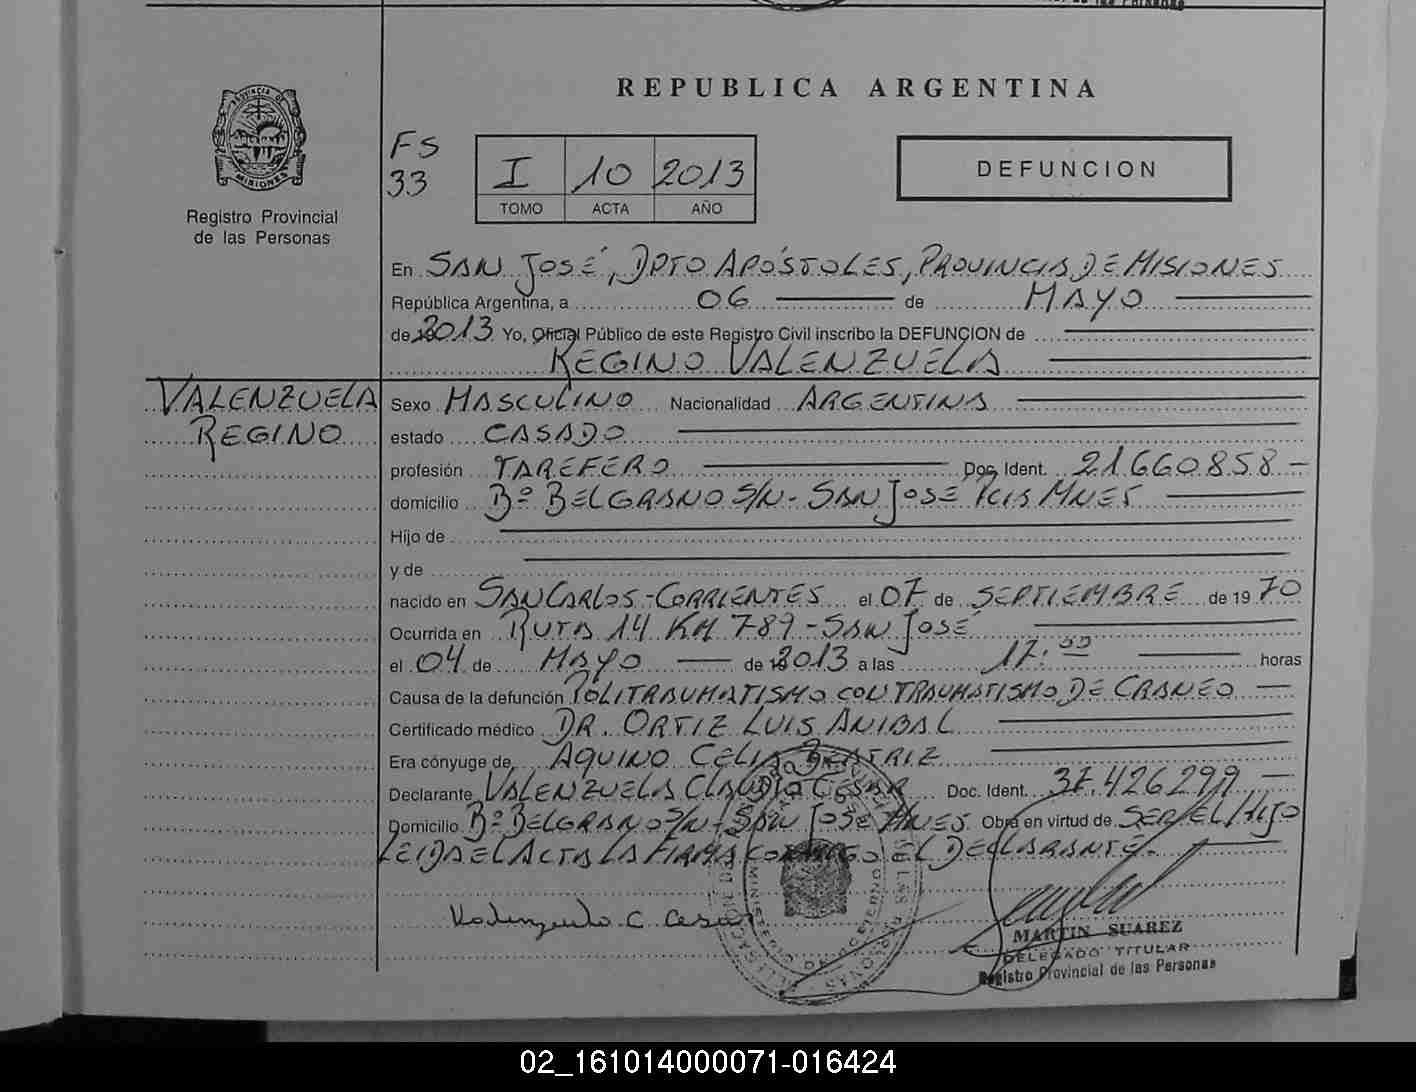 de las Personas
REPUBLICA ARGENTINA
PROVINCIA DE
MISIONES
Registro Provincial
de las Personas
FS
33
I 10 2013
TOMO ACTA AÑO
DEFUNCION
En SAN JOSÉ, DPTO APÓSTOLES, PROVINCIA DE MISIONES
República Argentina, a 06 de MAYO
de 2013 Yo, Oficial Público de este Registro Civil inscribo la DEFUNCION de
REGINO VALENZUELA
VALENZUELA
REGINO
Sexo MASCULINO Nacionalidad ARGENTINA
estado CASADO
profesión TAREFERO Doc. Ident. 21.660.858 -
domicilio Bº BELGRANO S/N - SAN JOSÉ PCIA MNES
Hijo de
y de
nacido en SAN CARLOS - CORRIENTES el 07 de SEPTIEMBRE de 1970
Ocurrida en RUTA 14 KM 789 - SAN JOSÉ
el 04 de MAYO de 2013 a las 17:00 horas
Causa de la defunción POLITRAUMATISMO CON TRAUMATISMO DE CRANEO
Certificado médico DR. ORTIZ LUIS ANIBAL
Era cónyuge de AQUINO CELIA BEATRIZ
Declarante VALENZUELA CLAUDIO CESAR Doc. Ident. 37.426299
Domicilio Bº BELGRANO S/N - SAN JOSÉ MNES Obra en virtud de SER EL HIJO
LEIDA EL ACTA LA FIRMA CONMIGO EL DECLARANTE.
Valenzuela C. Cesar
MARTIN SUAREZ
DELEGADO TITULAR
Registro Provincial de las Personas
02_161014000071-016424